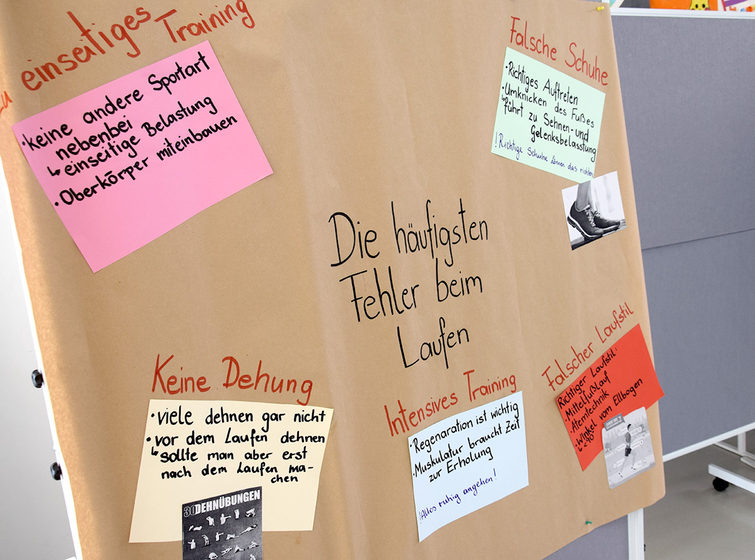 zu einseitiges Training
• keine andere Sportart
nebenbei
↳ einseitige Belastung
• Oberkörper miteinbauen
Falsche Schuhe
• Richtiges Auftreten
• Umknicken des Fußes
↳ führt zu Sehnen- und
Gelenksbelasstung
! Richtige Schuhe können das
Die häufigsten
Fehler beim
Laufen
Keine Dehung
• viele dehnen gar nicht
• vor dem Laufen dehnen
↳ sollte man aber erst
nach dem Laufen ma-
chen
30 DEHNÜBUNGEN
Intensives Training
• Regenaration ist wichtig
• Muskulatur braucht Zeit
zur Erholung
! Alles ruhig angehen!
Falscher Laufstil
Richtiger Laufstil:
• Mittelfußlauf
• Atemtechnik
• Winkel vom Ellbogen
↳ 90°